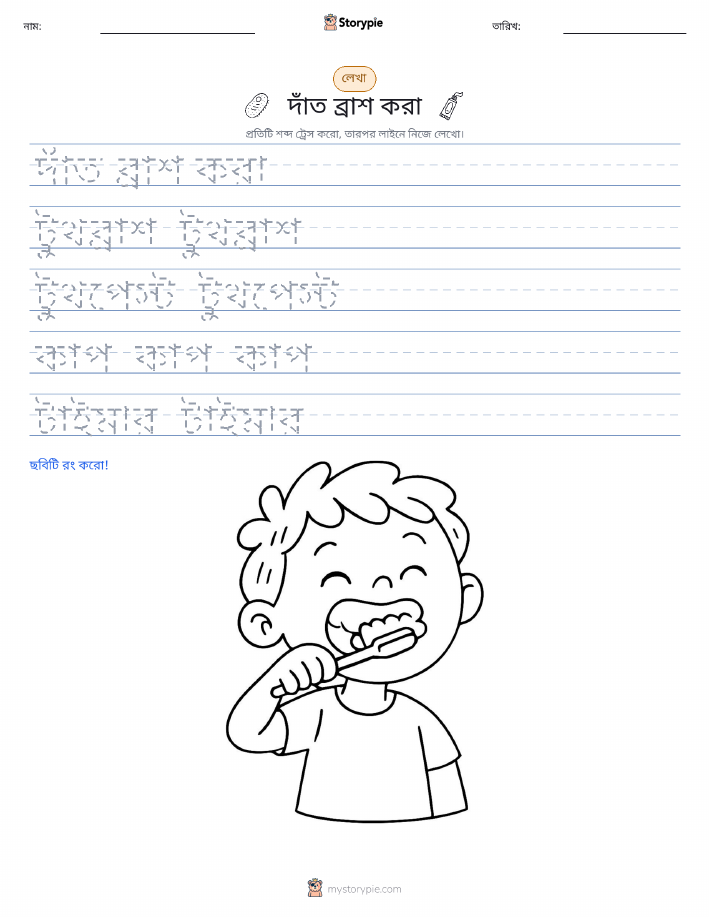 নাম:
Storypie
তারিখ:
লেখা
দাঁত ব্রাশ করা
প্রতিটি শব্দ ট্রেস করো, তারপর লাইনে নিজে লেখো।
দাঁত ব্রাশ করা
টুথব্রাশ টুথব্রাশ
টুথপেস্ট টুথপেস্ট
কাপ কাপ কাপ
টাইমার টাইমার
ছবিটি রং করো!
mystorypie.com